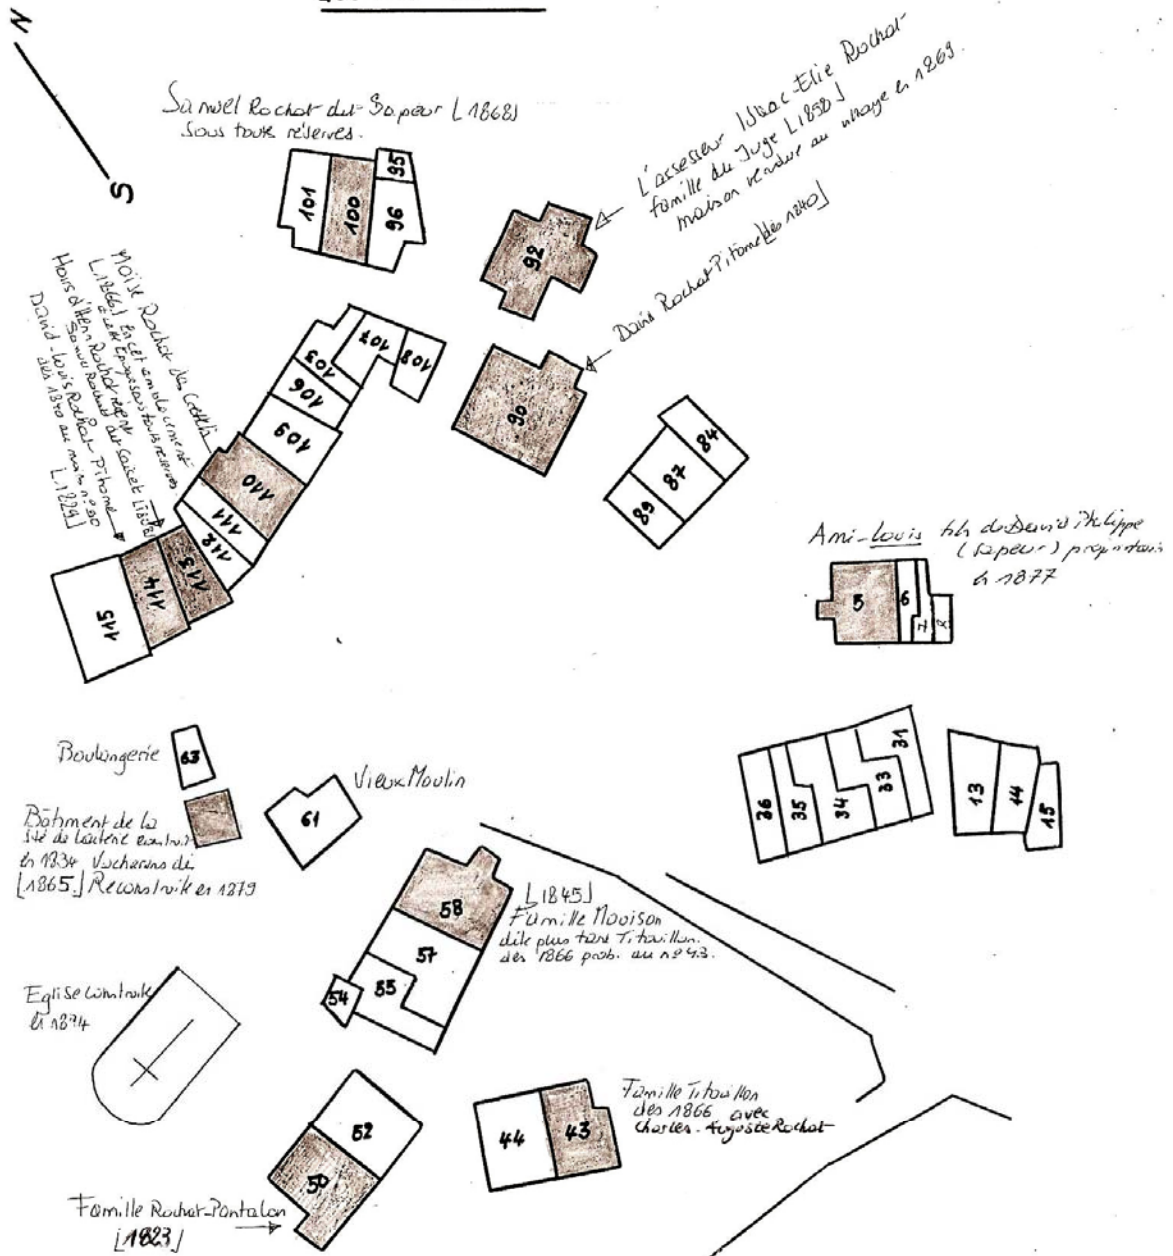 N
S
Samuel Rochat dit Sapeur [1868]
Sous toute réserves.
101
100
95
96
L'assesseur Isaac-Elie Rochat
famille du Juge [1858]
maison vendue au village en 1269.
92
David Rochat Pitôme [dès 1840]
90
Moïse Rochat des
[1266] en cet emplacement
à cette époque sous toute réserves
Hoirs d'Henri Rochat
Samuel Rochat dit
David-Louis Rochat Pitome
dès 1840 au n° 90
[1829]
103
107
108
106
109
110
111
112
113
114
115
84
87
89
Ami-Louis fils de David Philippe
(sapeur) propriétaire
en 1877
5
6
7
8
Boulangerie
63
Bâtiment de la
Sté de laiterie construit
en 1834 Vacherins dès
[1865.] Reconstruite en 1879
61
Vieux Moulin
36
35
34
33
31
13
14
15
58
57
55
54
[1845]
Famille Mouison
dite plus tard Titouillon.
dès 1866 prob. au n° 43.
Eglise construite
en 1874
52
50
44
43
Famille Titouillon
dès 1866 avec
Charles-Auguste Rochat
Famille Rochat-Pantalon
[1823]